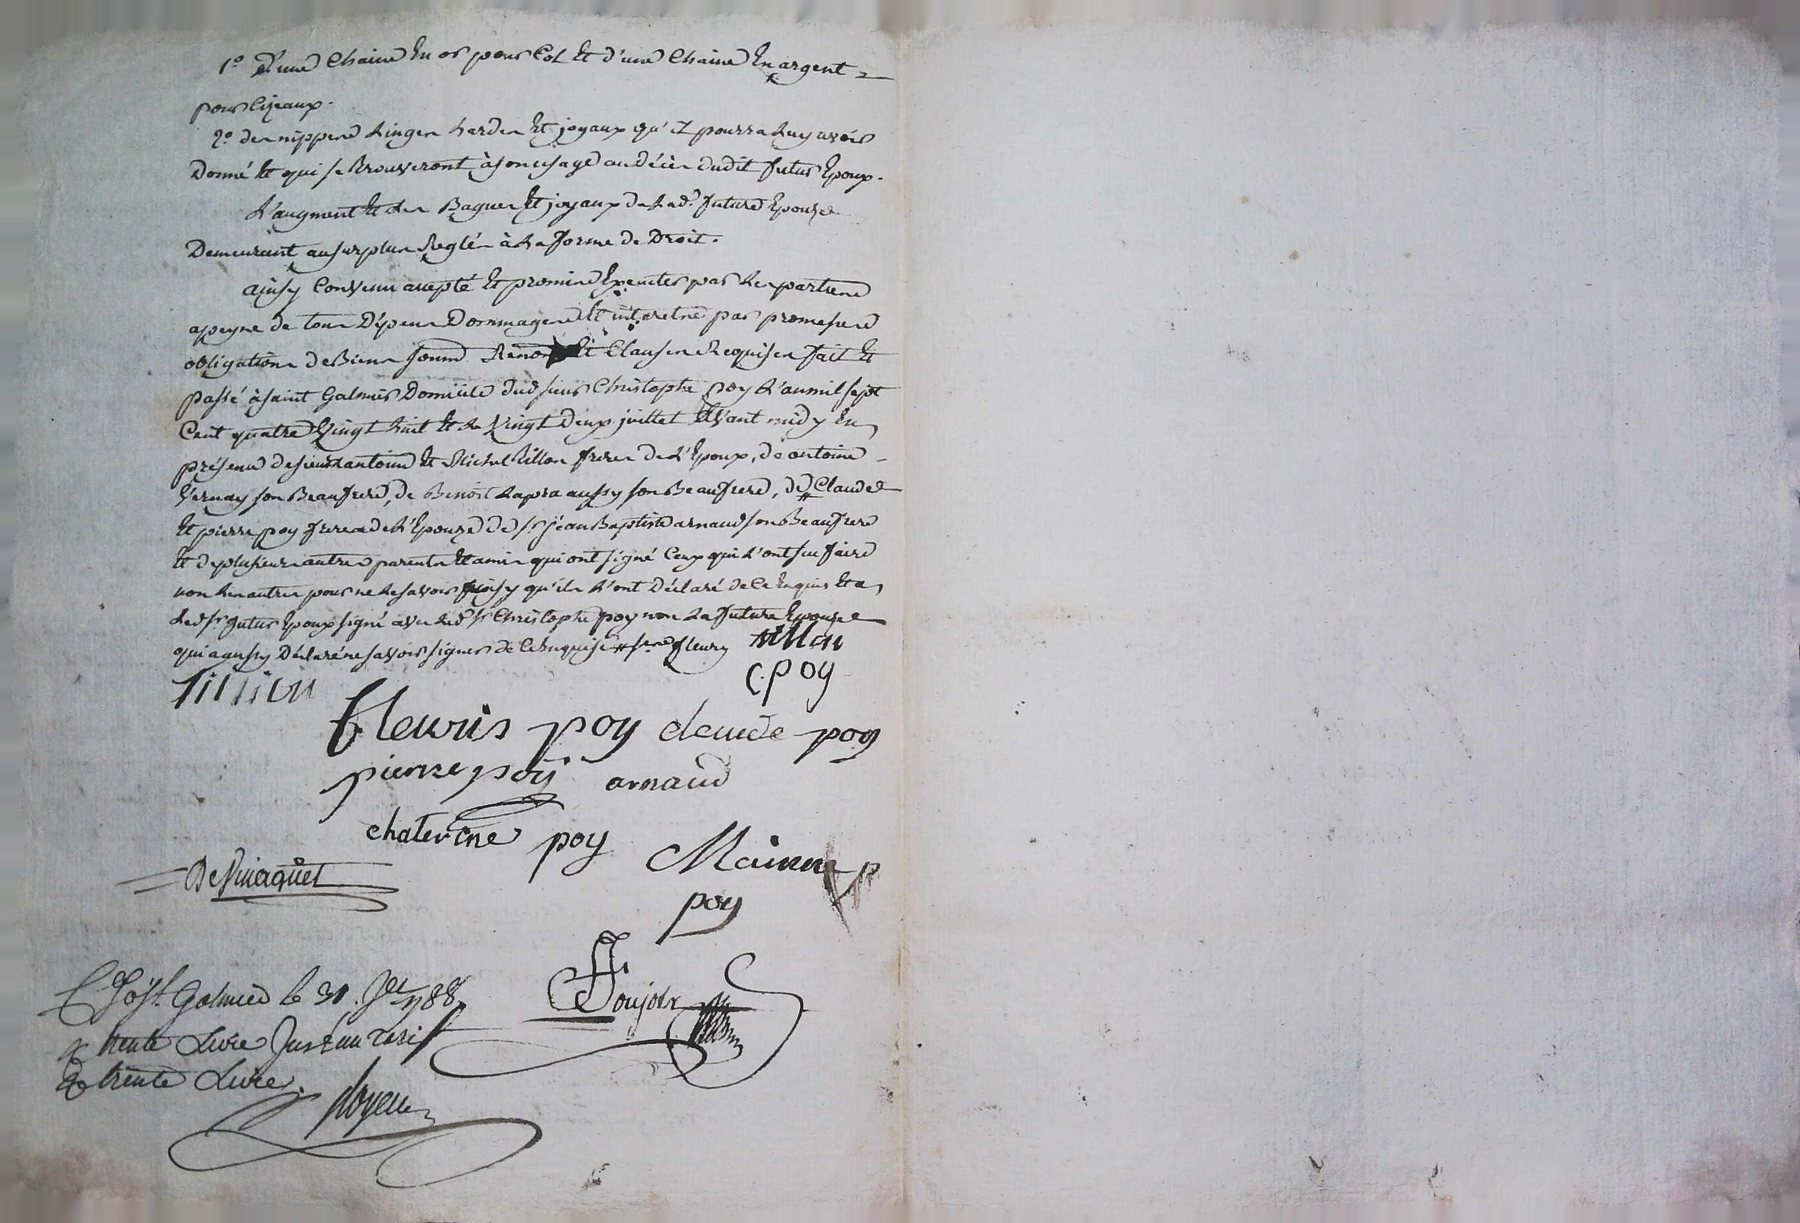 1° d'une Chaine En or pour Col Et d'une Chaine En argent
pour Cizeaux.
2° des nippes Linges hardes Et joyaux qu'il pourra Luy avoir
Donné Et qui se trouveront à son usage au Décès dudit futur Epoux.
L'augment Et les Bagues Et joyaux de Lad.e future Epouze
Demeurant au surplus Reglés à La forme de Droit.
ainsy Convenu accepté Et promis Executer par Les parties
a peyne de tous Dépens Dommages Et interets par promesses
obligations de Biens soumis Renon Et Clauses Requises fait Et
passé à saint Galmier Domicile dud sieur Christophe poy L'an mil sept
Cent quatre Vingt huit Et Le Vingt Deux juillet avant midy En
présence de sieurs antoine Et Michel tillon freres de L'Epoux, de antoine
Vernay son Beaufrere, de Benoit Lapra aussy son Beaufrere, de # Claude
Et pierre poy freres de L'Epouze de Sr jean Baptiste arnaud son Beaufrere
Et de plusieurs autres parents Et amis qui ont signé Ceux qui L'ont sçu faire
non Les autres pour ne Le savoir ainsy qu'ils L'ont Déclaré de Ce Enquis Et a
Led Sr futur Epoux signé avec Led Sr Christophe poy non La future Epouze
qui a aussy Déclaré ne savoir signer de Ce Enquise # fleury tillon
Tillion C. poy
fleuris poy claude poy
pierre poy arnaud
chaterine poy Mainne
poy
Cle à St. Galmier le 31. Jet 1788
R trente Livre
& trente Livre.